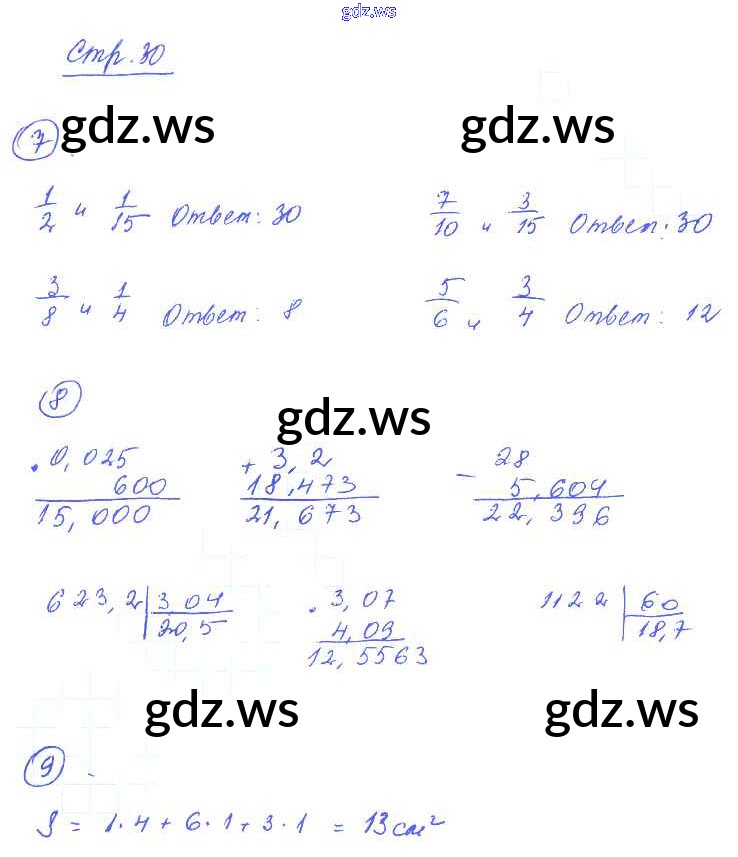 gdz.ws
Стр. 30
gdz.ws gdz.ws
7
1/2 и 1/15 Ответ: 30 7/10 и 3/15 Ответ: 30
3/8 и 1/4 Ответ: 8 5/6 и 3/4 Ответ: 12
8
gdz.ws
. 0,025 + 3,2 - 28
600 18,473 5,604
15,000 21,673 22,396
623,2 3,04 . 3,07 1122 60
20,5 4,09 18,7
12,5563
gdz.ws gdz.ws
9
S = 1·4 + 6·1 + 3·1 = 13 см²